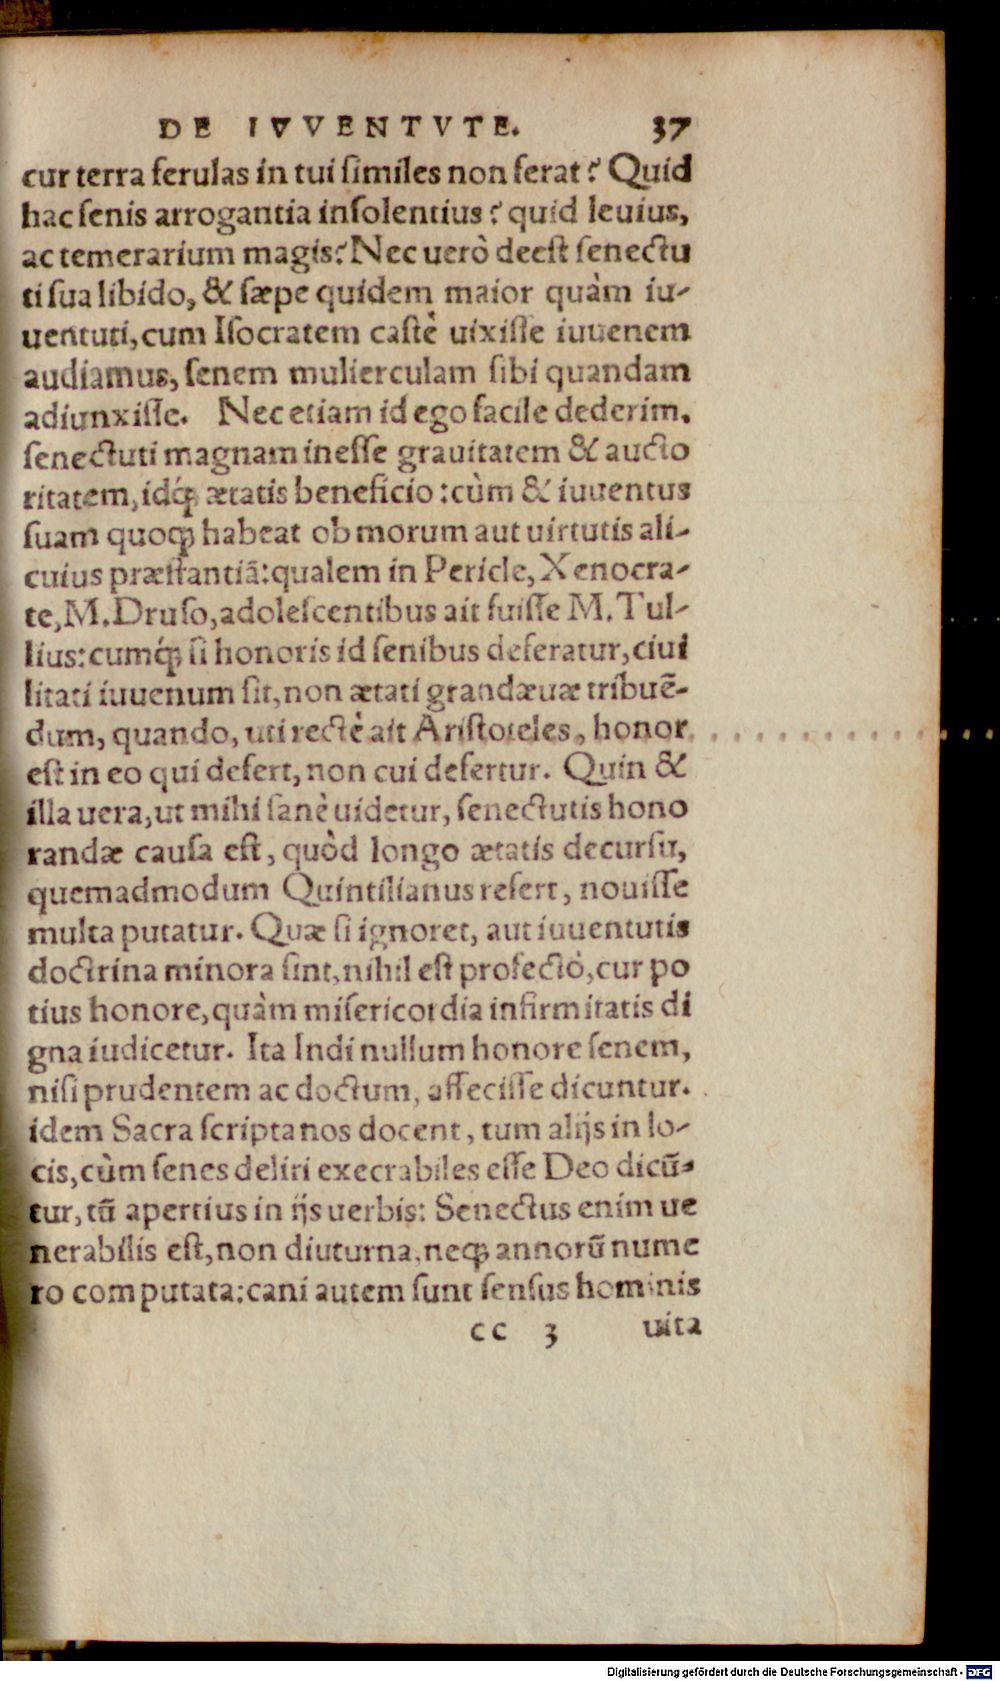 DE IVVENTVTE. 37
cur terra ferulas in tui ſimiles non ferat? Quid
hac ſenis arrogantia inſolentius? quid leuius,
ac temerarium magis? Nec uerò deeſt ſenectu
ti ſua libido, & ſæpe quidem maior quàm iu-
uentuti, cum Iſocratem caſtè uixiſſe iuuenem
audiamus, ſenem mulierculam ſibi quandam
adiunxiſſe. Nec etiam id ego facile dederim,
ſenectuti magnam ineſſe grauitatem & aucto
ritatem, idq́; ætatis beneficio: cùm & iuuentus
ſuam quoq; habeat ob morum aut uirtutis ali-
cuius præſtantiã: qualem in Pericle, Xenocra-
te, M. Druſo, adoleſcentibus ait fuiſſe M. Tul-
lius: cumq́; ſi honoris id ſenibus deferatur, ciui
litati iuuenum ſit, non ætati grandæuæ tribuẽ-
dum, quando, uti rectè ait Ariſtoteles, honor
eſt in eo qui defert, non cui defertur. Quin &
illa uera, ut mihi ſanè uidetur, ſenectutis hono
randæ cauſa eſt, quòd longo ætatis decurſu,
quemadmodum Quintilianus refert, nouiſſe
multa putatur. Quæ ſi ignoret, aut iuuentutis
doctrina minora ſint, nihil eſt profectò, cur po
tius honore, quàm miſericordia infirmitatis di
gna iudicetur. Ita Indi nullum honore ſenem,
niſi prudentem ac doctum, affeciſſe dicuntur.
idem Sacra ſcripta nos docent, tum alijs in lo-
cis, cùm ſenes deliri execrabiles eſſe Deo dicũ-
tur, tũ apertius in ijs uerbis: Senectus enim ue
nerabilis eſt, non diuturna, neq; annorũ nume
ro computata: cani autem ſunt ſenſus hominis
cc 3 uita
Digitalisierung gefördert durch die Deutsche Forschungsgemeinschaft - DFG